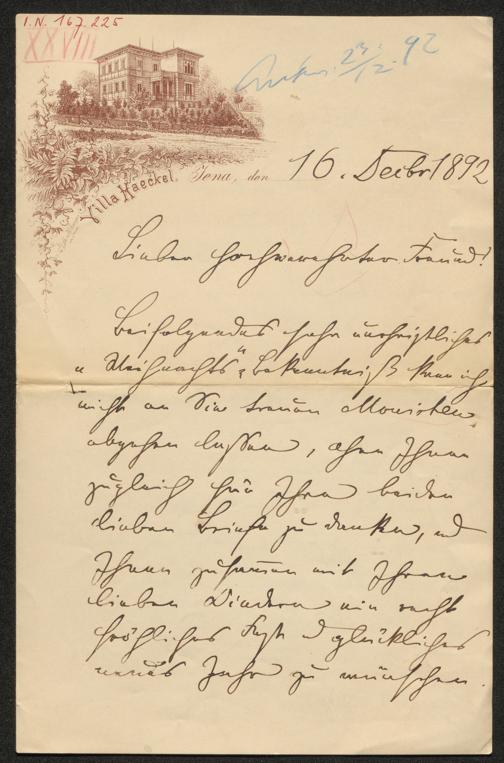 I.N. 167.225
XXVIII
Antw. 23./12. 92
Villa Haeckel. Jena, den 16. Decbr 1892
Lieber hochverehrter Freund!
Beifolgendes sehr unchristliches
„Weihnachts“-Bekenntniß kann ich
nicht an Sie treuen Monisten
abgehen lassen, ohne Ihnen
zugleich für Ihre beiden
lieben Briefe zu danken, und
Ihnen zusammen mit Ihren
lieben Kindern ein recht
fröhliches Fest u glückliches
neues Jahr zu wünschen.